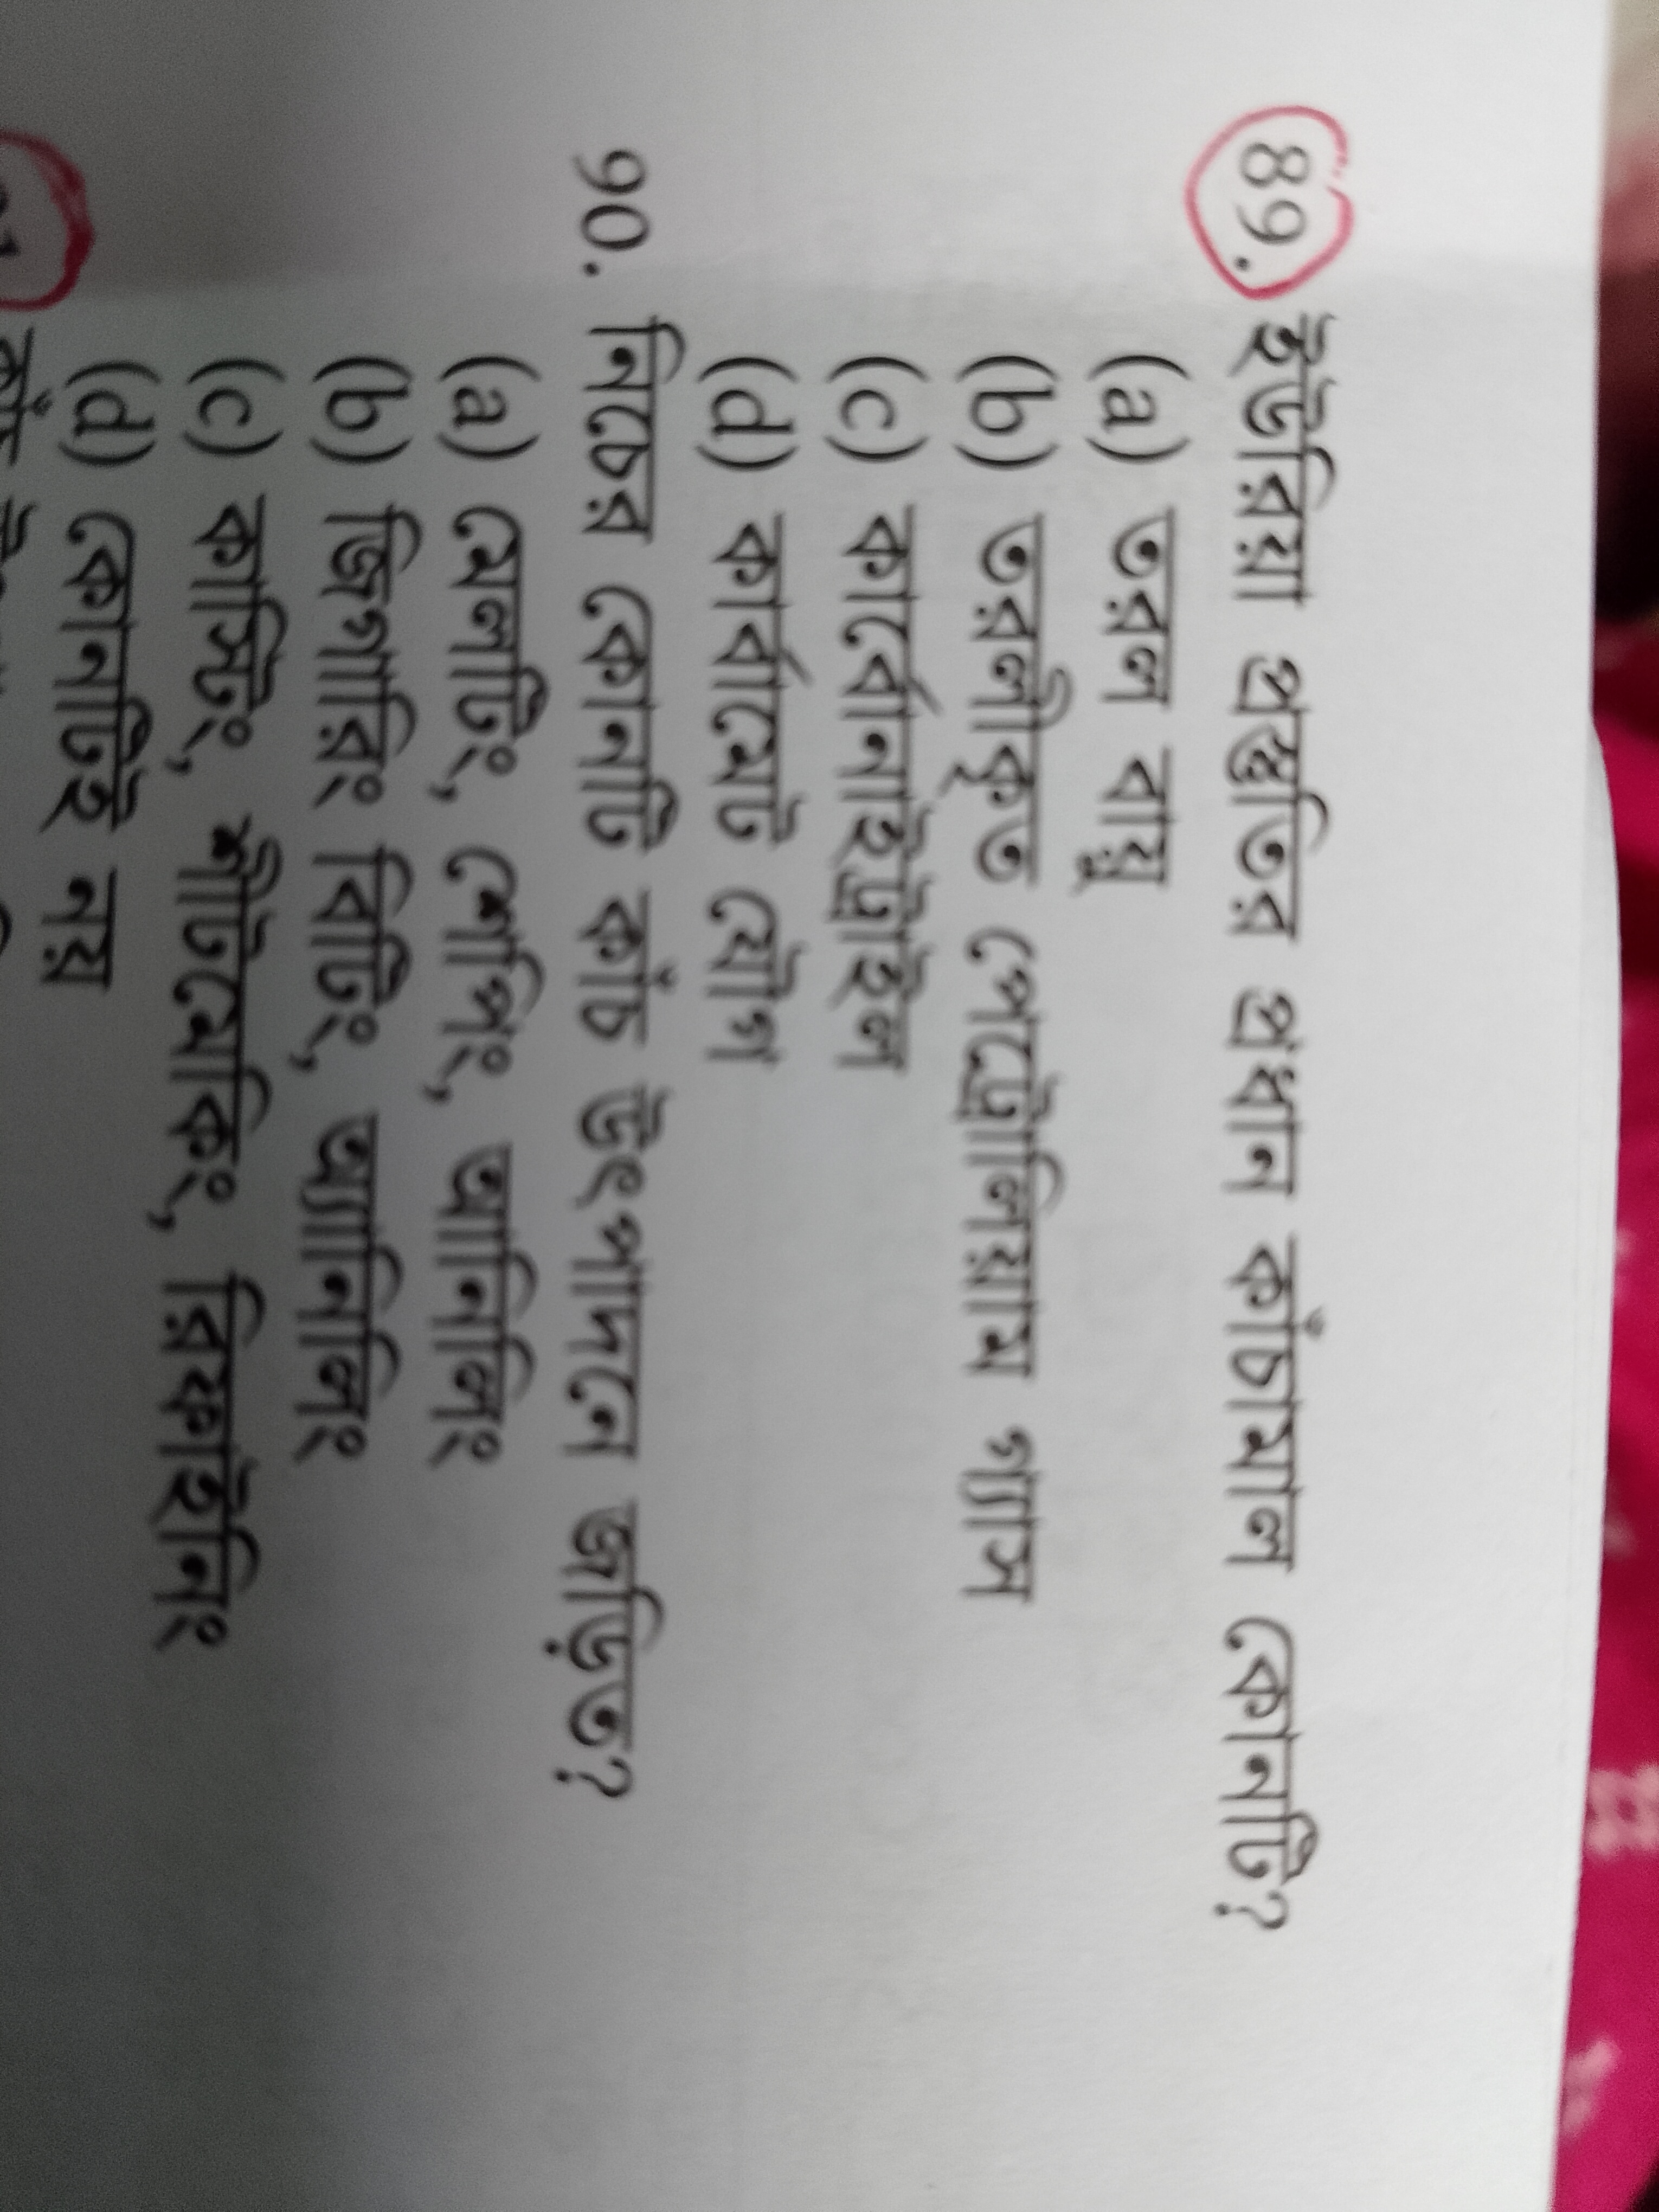 89. ইউরিয়া প্রস্তুতির প্রধান কাঁচামাল কোনটি?
(a) তরল বায়ু
(b) তরলীকৃত পেট্রোলিয়াম গ্যাস
(c) কার্বোনাইট্রাইল
(d) কার্বামেট যৌগ
90. নিচের কোনটি কাঁচ উৎপাদনে জড়িত?
(a) মেলটিং, শেপিং, আনিলিং
(b) প্রিপারিং বিটিং, অ্যানিলিং
(c) কাস্টিং, শীটমেকিং, রিফাইনিং
(d) কোনটিই নয়